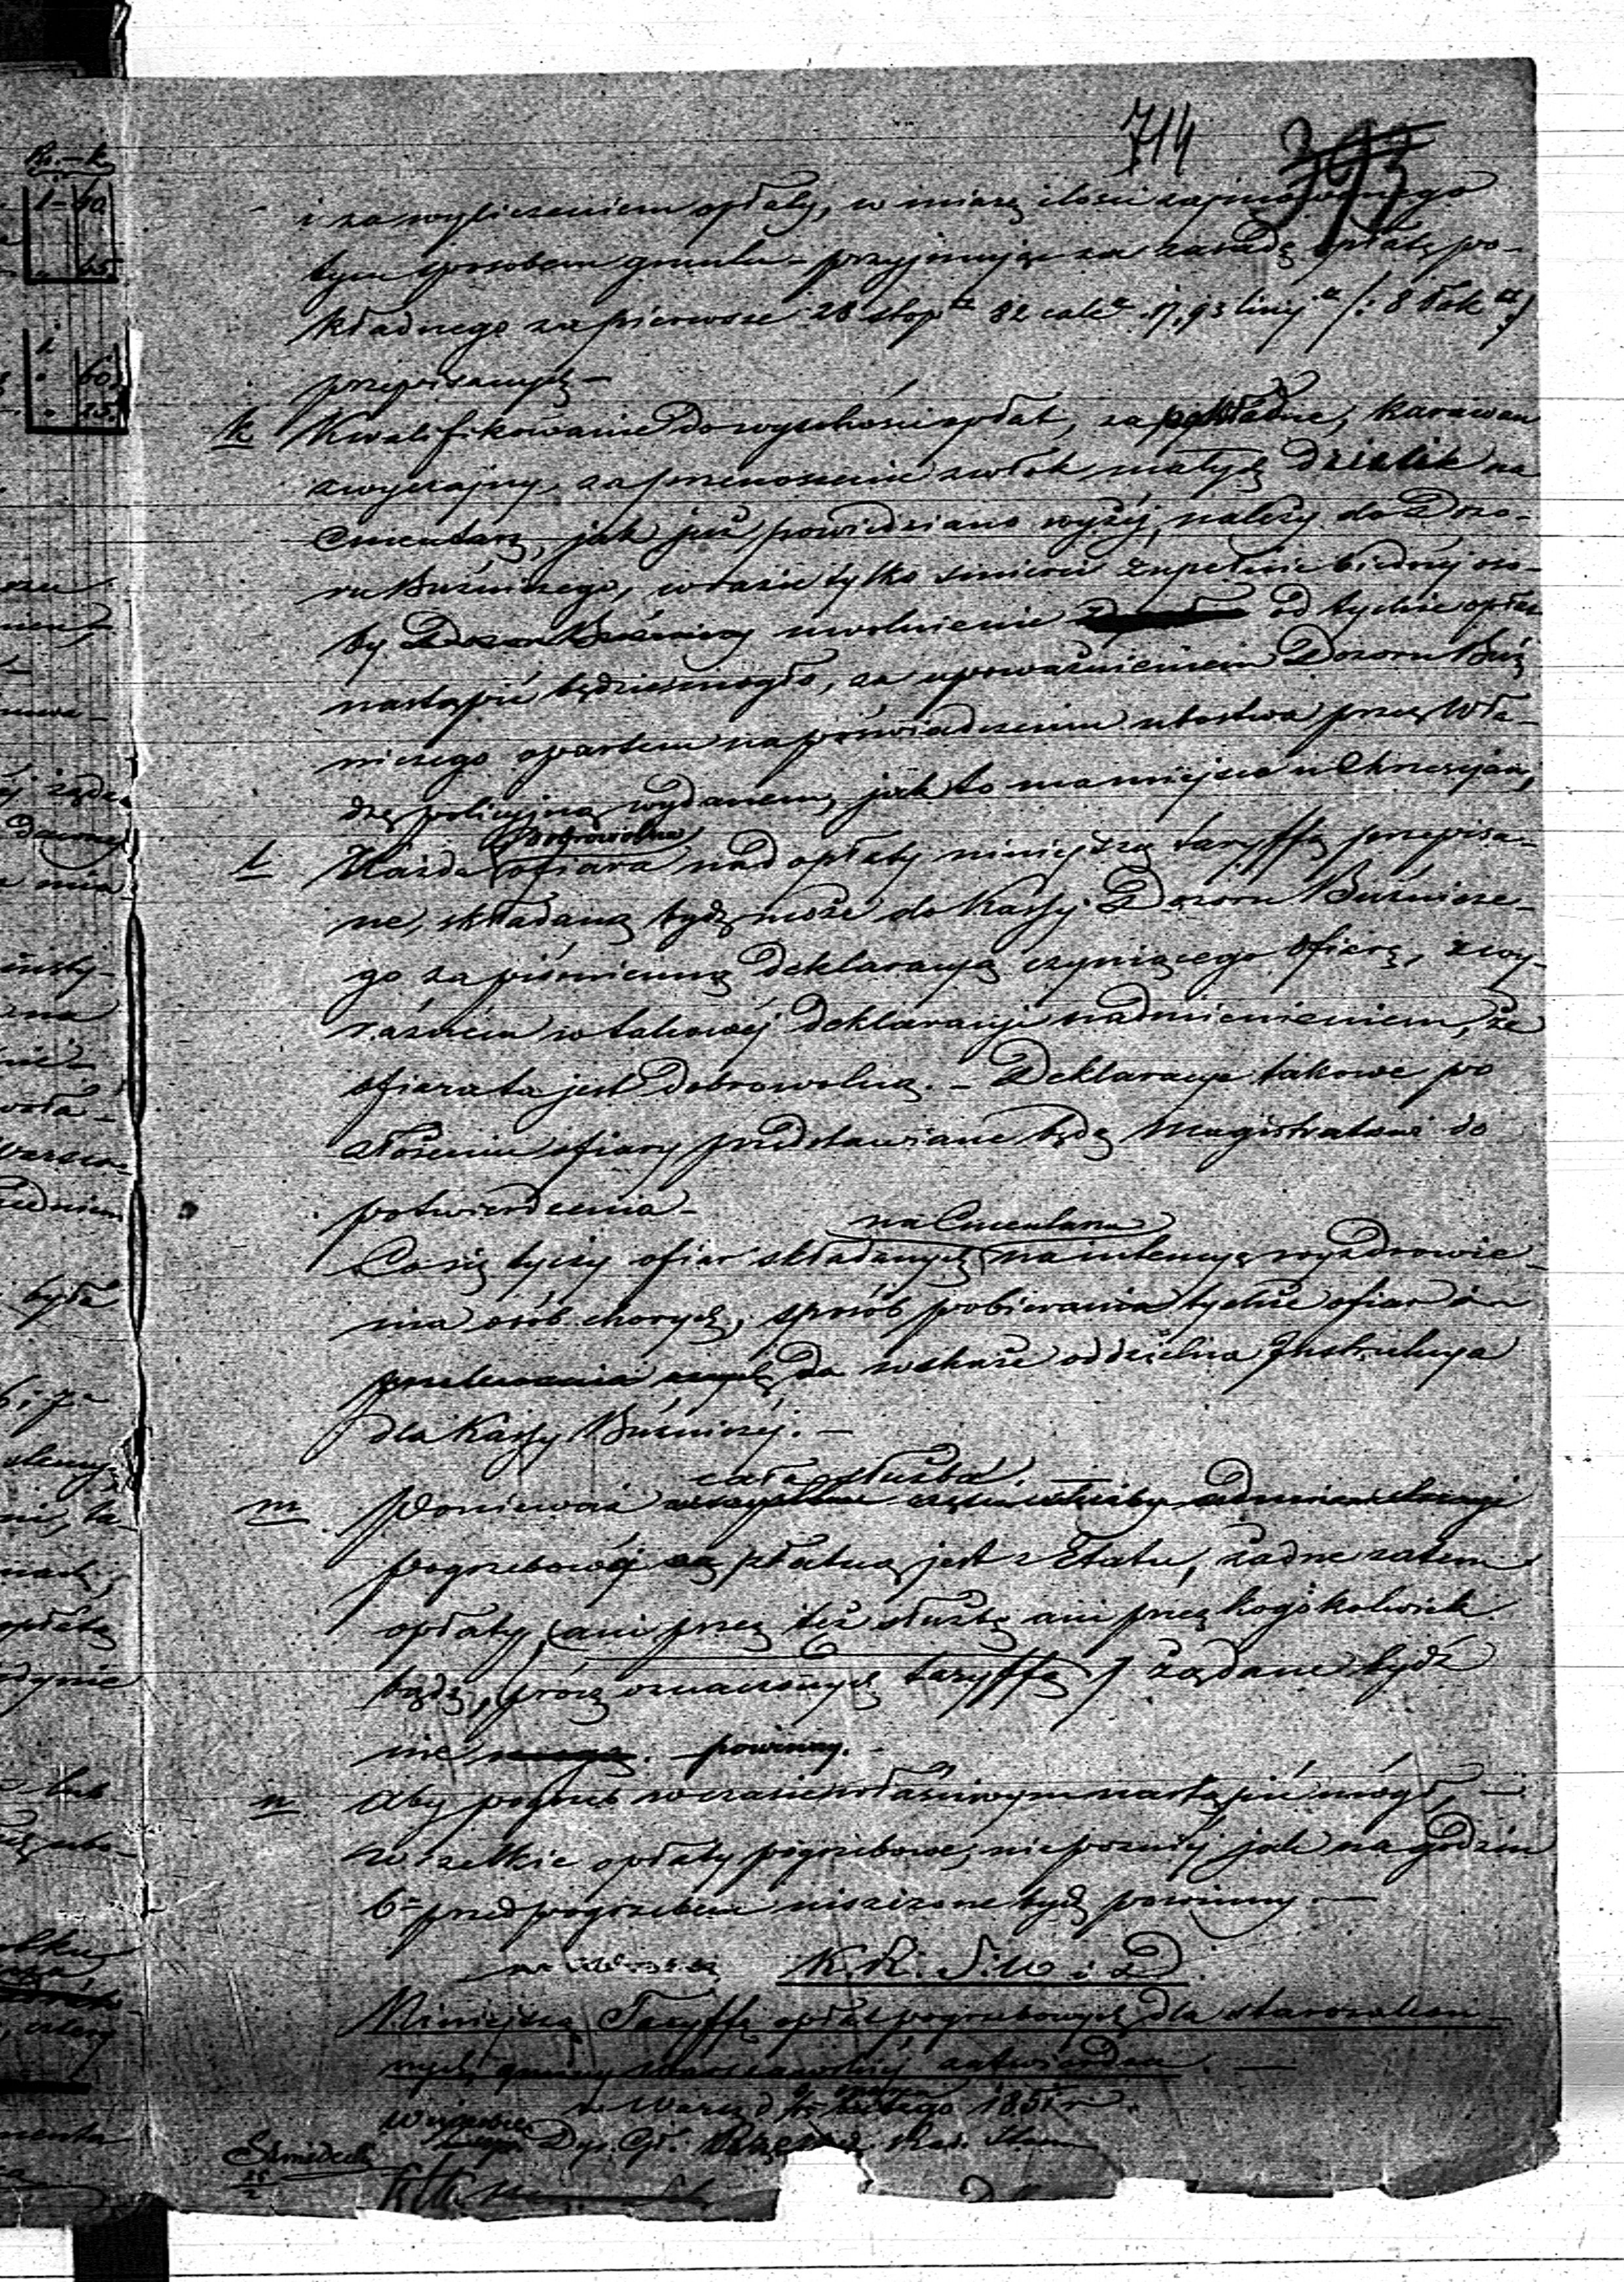 714
393
Rs. - k
1 - 40
45
60
25
i za wyliczeniem opłaty, w miarę ilości zajmowanego
tym sposobem gruntu - przyjmując za zasadę opłatę po-
kładnego za pierwsze 28 stóp 82 cale 17,93 linij /: 8 łok :/
przepisanych -
k Kwalifikowanie do wysokości opłat, za pokładne, karawan
zwyczajny, za przenoszenie zwłok małych dzieci na
Cmentarz, jak już powiedziano wyżej, należy do Dozo-
ru Bużniczego, w razie tylko śmierci zupełnie biednej oso-
by Dozor Bużniczy uwolnienie od tychże opłat
nastąpić będzie mogło, za upoważnieniem Dozoru Buż
niczego opartem na poświadczeniu ubóstwa przez Wła-
dzę policyjną wydanem, jak to ma miejsce u Chrześcjan,
dobrowolna
l Każda ofiara nad opłaty niniejszą taryffą przepisa-
ne, składaną bydź może do Kassy Dozoru Bużnicze-
go za piśmienną deklaracją czyniącego ofiarę, z wy-
raźnem w takowej deklaracji nadmienieniem, że
ofiara ta jest dobrowolną. - Deklaracje takowe po
złożeniu ofiary przedstawiane będą Magistratowi do
potwierdzenia -
na Cmentarzu
Co się tyczy ofiar składanych na intencyą wyzdrowie-
nia osób chorych, sposób pobierania tychże ofiar i
przelewania wskaże oddzielna Instrukcya
dla Kassy Bużniczej. -
cała służba
m Ponieważ wszystkie części służby administracyi
pogrzebowej są płatną jest z Etatu, żadne zatem
opłaty, ani przez też służbę ani przez kogokolwiek
bądź, prócz oznaczonych taryffą żądane bydź
nie mogą. powinny. -
n Aby pogrzeb w czasie właściwym nastąpić mógł, -
wszelkie opłaty pogrzebowe, niepóźniej jak na godzin
6 przed pogrzebem uiszczone bydź powinny. -
K. R. S. W i D.
Niniejszą Taryffę opłat pogrzebowych dla starozakon
nych gminy Warszawskiej zatwierdza. -
w Warsz d Lutego 1851 r.
Dyr. Gł.